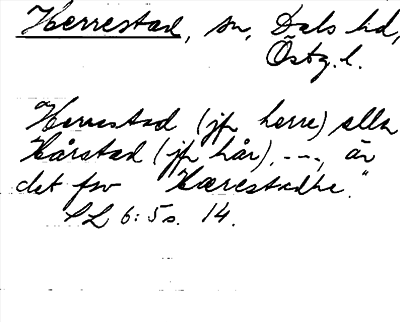 Herrestad, sn, Dals hd,
Östg. l.
Herrestad (jfr herre) eller
Hårstad (jfr hår), ---, är
det fsv "Hærestadhe."
SL 6:5 s. 14.